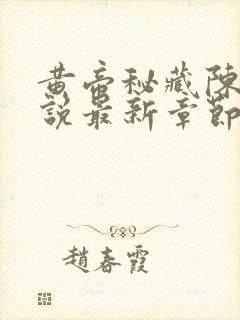 黄帝秘藏陳
說最新章節
趙春霞